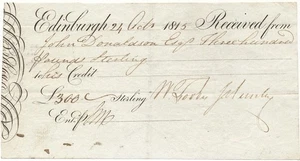 Edinburgh 24 Octr 1815 Received from
John Donaldson Esqr Three hundred
Pounds Sterling
his Credit
£300 Sterling
Entd